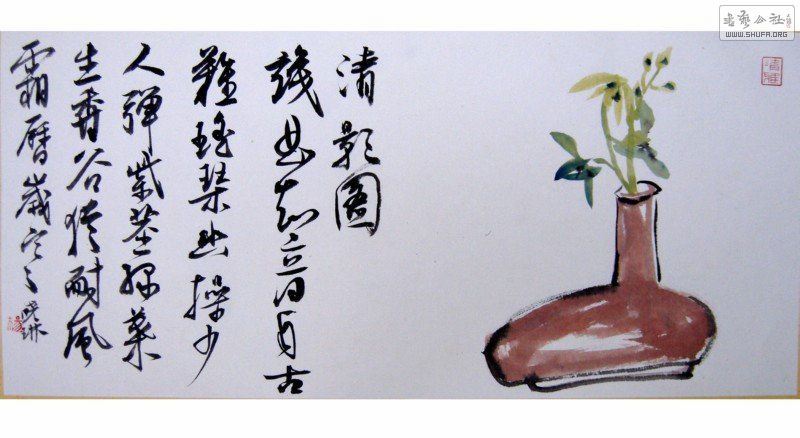 書藝公社
WWW.SHUFA.ORG
清影圖
幾曲知音自古
難瑤琴幽操少
人彈紫莖綠葉
生香谷猶耐風
霜曆歲寒
曉琳